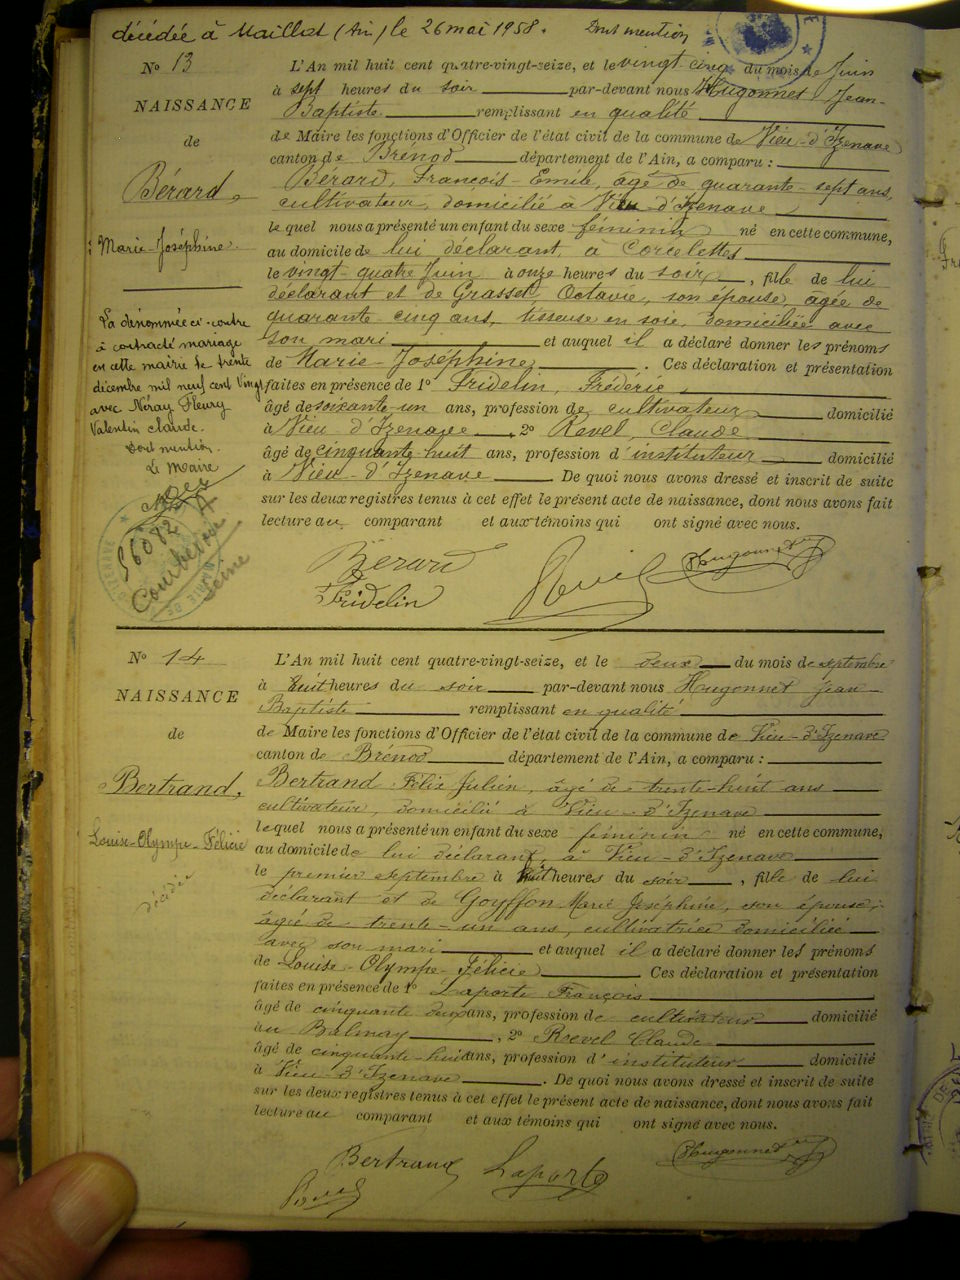 décédée à Maillat (Ain) le 26 mai 1958. Dont mention
N° 13
NAISSANCE
de
Bérard
Marie-Joséphine.
La dénommée ci-contre
a contracté mariage
en cette mairie le trente
décembre mil neuf cent vingt
avec Néray Fleury
Valentin Claude.
Dont mention.
Le Maire
56082
Courbevoie
Seine
L'An mil huit cent quatre-vingt-seize, et le vingt cinq du mois de Juin
à sept heures du soir par-devant nous Hugonnet Jean-
Baptiste remplissant en qualité
de Maire les fonctions d'Officier de l'état civil de la commune de Vieu-d'Izenave
canton de Brénod département de l'Ain, a comparu :
Bérard, François-Emile, âgé de quarante-sept ans,
cultivateur, domicilié à Vieu d'Izenave
lequel nous a présenté un enfant du sexe féminin né en cette commune,
au domicile de lui déclarant, à Corcelettes
le vingt-quatre Juin à onze heures du soir, fille de lui
déclarant et de Grasset Octavie, son épouse, âgée de
quarante-cinq ans, tisseuse en soie, domiciliée avec
son mari et auquel il a déclaré donner les prénoms
de Marie-Joséphine. Ces déclaration et présentation
faites en présence de 1° Fridelin, Frédéric
âgé de soixante-un ans, profession de cultivateur domicilié
à Vieu d'Izenave, 2° Revel, Claude
âgé de cinquante-huit ans, profession d'instituteur domicilié
à Vieu-d'Izenave. De quoi nous avons dressé et inscrit de suite
sur les deux registres tenus à cet effet le présent acte de naissance, dont nous avons fait
lecture au comparant et aux témoins qui ont signé avec nous.
Bérard
Revel Hugonnet
Fridelin
N° 14
NAISSANCE
de
Bertrand,
Louise-Olympe-Félicie
décédée
L'An mil huit cent quatre-vingt-seize, et le deux du mois de septembre
à huit heures du soir par-devant nous Hugonnet Jean-
Baptiste remplissant en qualité
de Maire les fonctions d'Officier de l'état civil de la commune de Vieu-d'Izenave
canton de Brénod département de l'Ain, a comparu :
Bertrand Félix Julien, âgé de trente-huit ans
cultivateur, domicilié à Vieu-d'Izenave
lequel nous a présenté un enfant du sexe féminin né en cette commune,
au domicile de lui déclarant, à Vieu-d'Izenave
le premier septembre à huit heures du soir, fille de lui
déclarant et de Goyffon Marie Joséphine, son épouse,
âgée de trente-un ans, cultivatrice domiciliée
avec son mari et auquel il a déclaré donner les prénoms
de Louise-Olympe-Félicie Ces déclaration et présentation
faites en présence de 1° Laporte François
âgé de cinquante deux ans, profession de cultivateur domicilié
au Balmay, 2° Revel Claude
âgé de cinquante-huit ans, profession d'instituteur domicilié
à Vieu-d'Izenave. De quoi nous avons dressé et inscrit de suite
sur les deux registres tenus à cet effet le présent acte de naissance, dont nous avons fait
lecture au comparant et aux témoins qui ont signé avec nous.
Bertrand Laporte Hugonnet
Revel